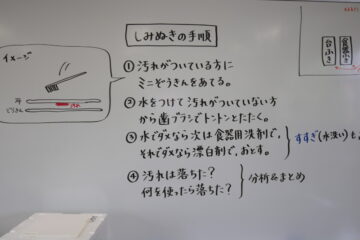 しみぬきの手順
イメージ
① 汚れがついている方に
ミニぞうきんをあてる。
② 水をつけて汚れがついていない方
から歯ブラシでトントンとたたく。
③ 水でダメなら次は食器用洗剤で、
それでダメなら漂白剤で、おとす。
すすぎ(水洗い)も
④ 汚れは落ちた?
何を使ったら落ちた?
分析&まとめ
台ふき